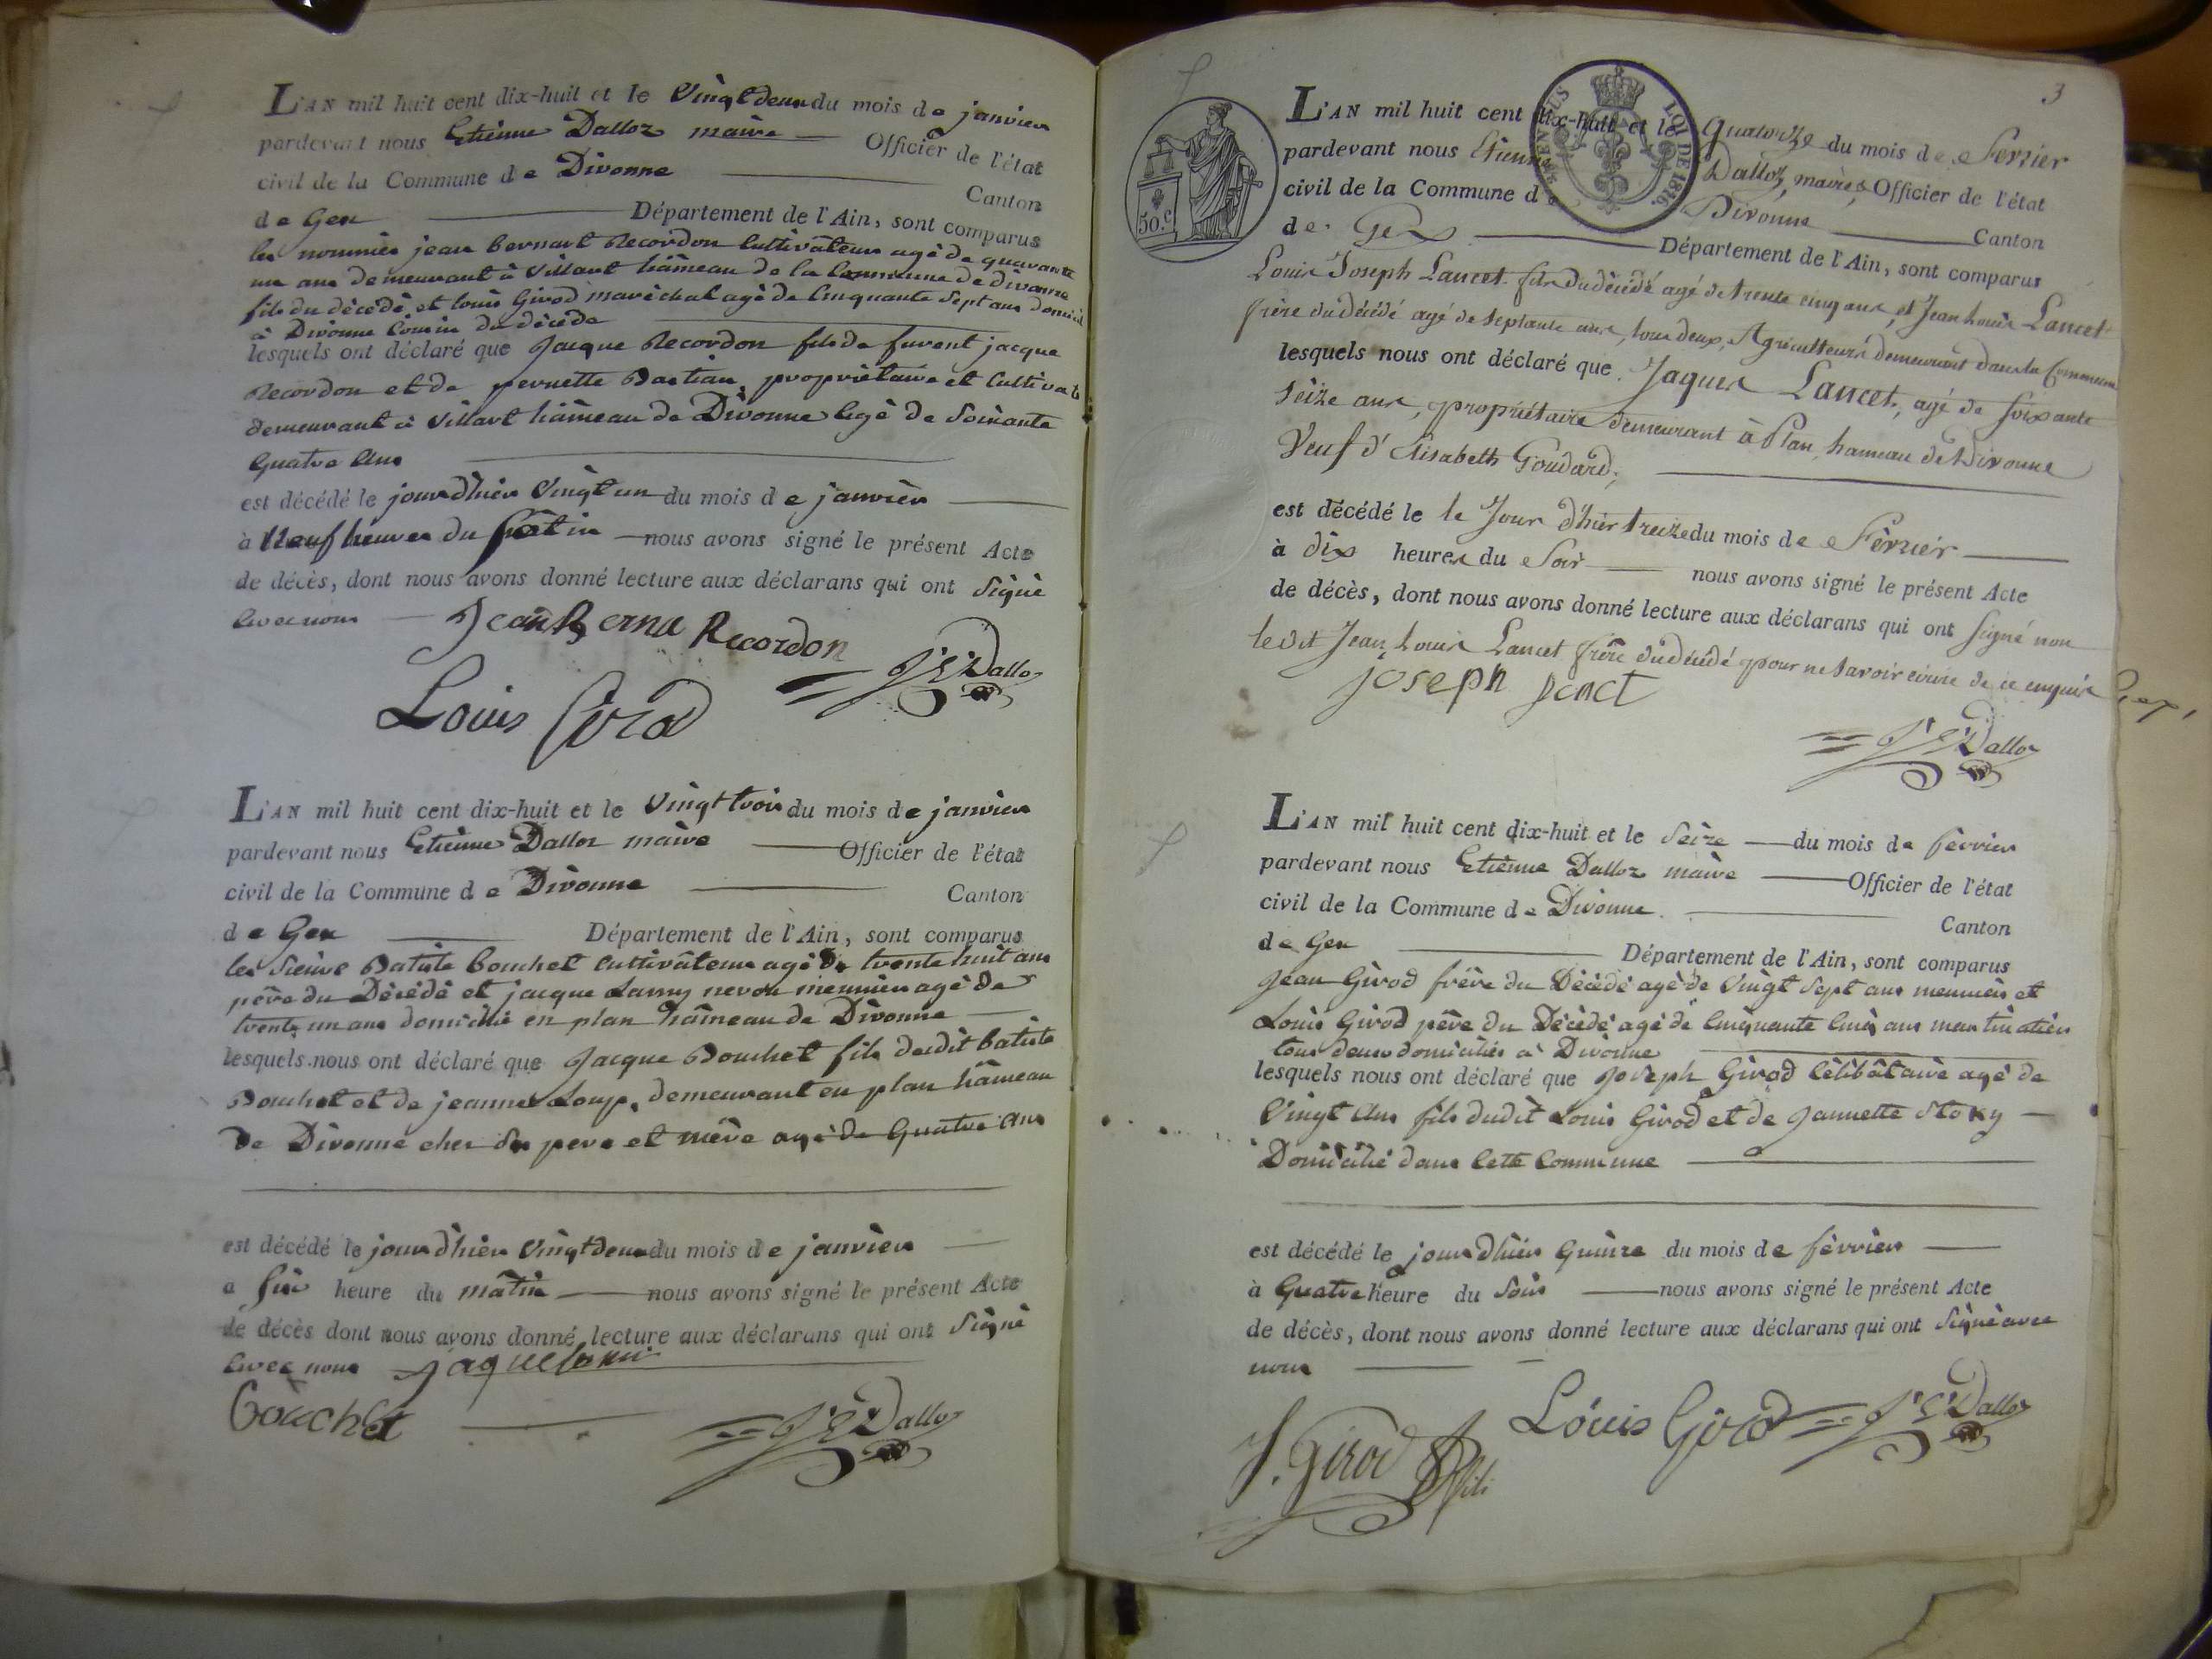 L'AN mil huit cent dix-huit et le Vingt deux du mois de janvier
pardevant nous Etiènne Dalloz maire Officier de l'état
civil de la Commune de Divonne
Canton
de Gex Département de l'Ain, sont comparus
les nommés jean bernart Recordon Cultivâteur agé de quarante
un ans demeurant à Villart hâmeau de la Commune de divonne
fils du décédé, et louis Girod maréchal agé de Cinquante Sept ans domicil
à Divonne Cousin du décédé
lesquels ont déclaré que Jacque Recordon fils de fuvent jacque
Recordon et de pernette Bastian, propriètaire et Cultivat
demeurant à Villart hâmeau de Divonne Agé de Soixante
Quatre Ans
est décédé le jour d'hier Vingt un du mois de janvier
à Neuf heures du Matin nous avons signé le présent Acte
de décès, dont nous avons donné lecture aux déclarans qui ont Signé
Avec nous Jean Berna Recordon
J. E. Dalloz
Louis Girod
L'AN mil huit cent dix-huit et le Vingt trois du mois de janvier
pardevant nous Etiènne Dalloz maire Officier de l'état
civil de la Commune de Divonne Canton
de Gex Département de l'Ain, sont comparus
les Sieurs Batiste Bouchet Cultivâteur agé de trente huit ans
père du Décédé et jacque Lanny neveu meunier agé de
trente un ans domicilié en plan hâmeau de Divonne
lesquels nous ont déclaré que Jacque Bouchet fils dudit batiste
Bouchet et de jeanne Loup, demeurant en plan hâmeau
de Divonne chez Son pere et mère agé de Quatre Ans
est décédé le jour d'hier Vingt deux du mois de janvier
a Six heure du mâtin nous avons signé le présent Acte
de décès dont nous avons donné lecture aux déclarans qui ont Signé
Avec nous
Bouchet
J. E. Dalloz
3
50.c
LOI DE 1816.
L'AN mil huit cent dix-huit et le Quatorze du mois de Fevrier
pardevant nous Etienne Dalloz, maire, Officier de l'état
civil de la Commune de Divonne Canton
de Gex Département de l'Ain, sont comparus
Louis Joseph Lancet fils du décédé agé de trente cinq ans, et Jean Louis Lancet
frère du décédé agé de septante ans, tous deux, Agriculteurs demeurant dans la Commune
lesquels nous ont déclaré que Jaques Lancet, agé de soixante
seize ans, propriétaire demeurant à Plan, hameau de Divonne
Veuf d'Elisabeth Goudard,
est décédé le le Jour d'hier treize du mois de Février
à dix heures du Soir nous avons signé le présent Acte
de décès, dont nous avons donné lecture aux déclarans qui ont signé non
ledit Jean Louis Lancet frère du décédé pour ne savoir écrire de ce enquis
joseph
J. E. Dalloz
L'AN mil huit cent dix-huit et le Seize du mois de février
pardevant nous Etiènne Dalloz maire Officier de l'état
civil de la Commune de Divonne
Canton
de Gex Département de l'Ain, sont comparus
Jean Girod frère du Décédé agé de Vingt Sept ans meunier et
Louis Girod père du Décédé agé de Cinquante Cinq ans
tous deux domiciliés à Divonne
lesquels nous ont déclaré que Joseph Girod Célibâtaire agé de
Vingt Ans fils dudit Louis Girod et de Jannette Stoky
Domicilié dans Cette Commune
est décédé le jour d'hier Quinze du mois de février
à Quatre heure du Soir nous avons signé le présent Acte
de décès, dont nous avons donné lecture aux déclarans qui ont Signé avec
nous
Louis Girod
J. E. Dalloz
J. Girod fils